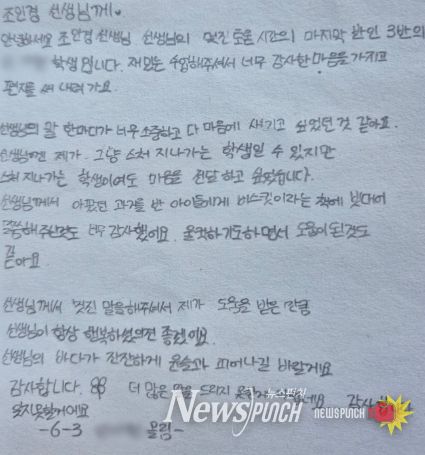 조인경 선생님께♥
안녕하세요 조인경 선생님 선생님의 멋진 도움 시간의 마지막 반인 3반의
학생입니다. 재밌는 수업해주셔서 너무 감사한 마음을 가지고
편지를 써 내려가요.
선생님의 말 한마디가 너무 소중하고 다 마음에 새기고 싶었던 것 같아요.
선생님에겐 제가 그냥 스쳐 지나가는 학생일 수 있지만
스쳐 지나가는 학생이어도 마음을 전달하고 싶었습니다.
선생님께서 아팠던 과거를 반 아이들에게 비스킷이라는 책에 빗대어
말씀해주신것도 너무 감사했어요. 울컥하기도하면서 도움이 된것도
같아요
선생님께서 멋진 말을해주셔서 제가 도움을 받은 만큼
선생님이 항상 행복하셨으면 좋겠어요.
선생님의 바다가 잔잔하게 윤슬과 피어나길 바랄게요
감사합니다. 더 많은 말을 드리지 못하 네요 감사
잊지못할거에요
-6-3 올림-
NEWSPUNCH 뉴스펀치
NEWSPUNCH